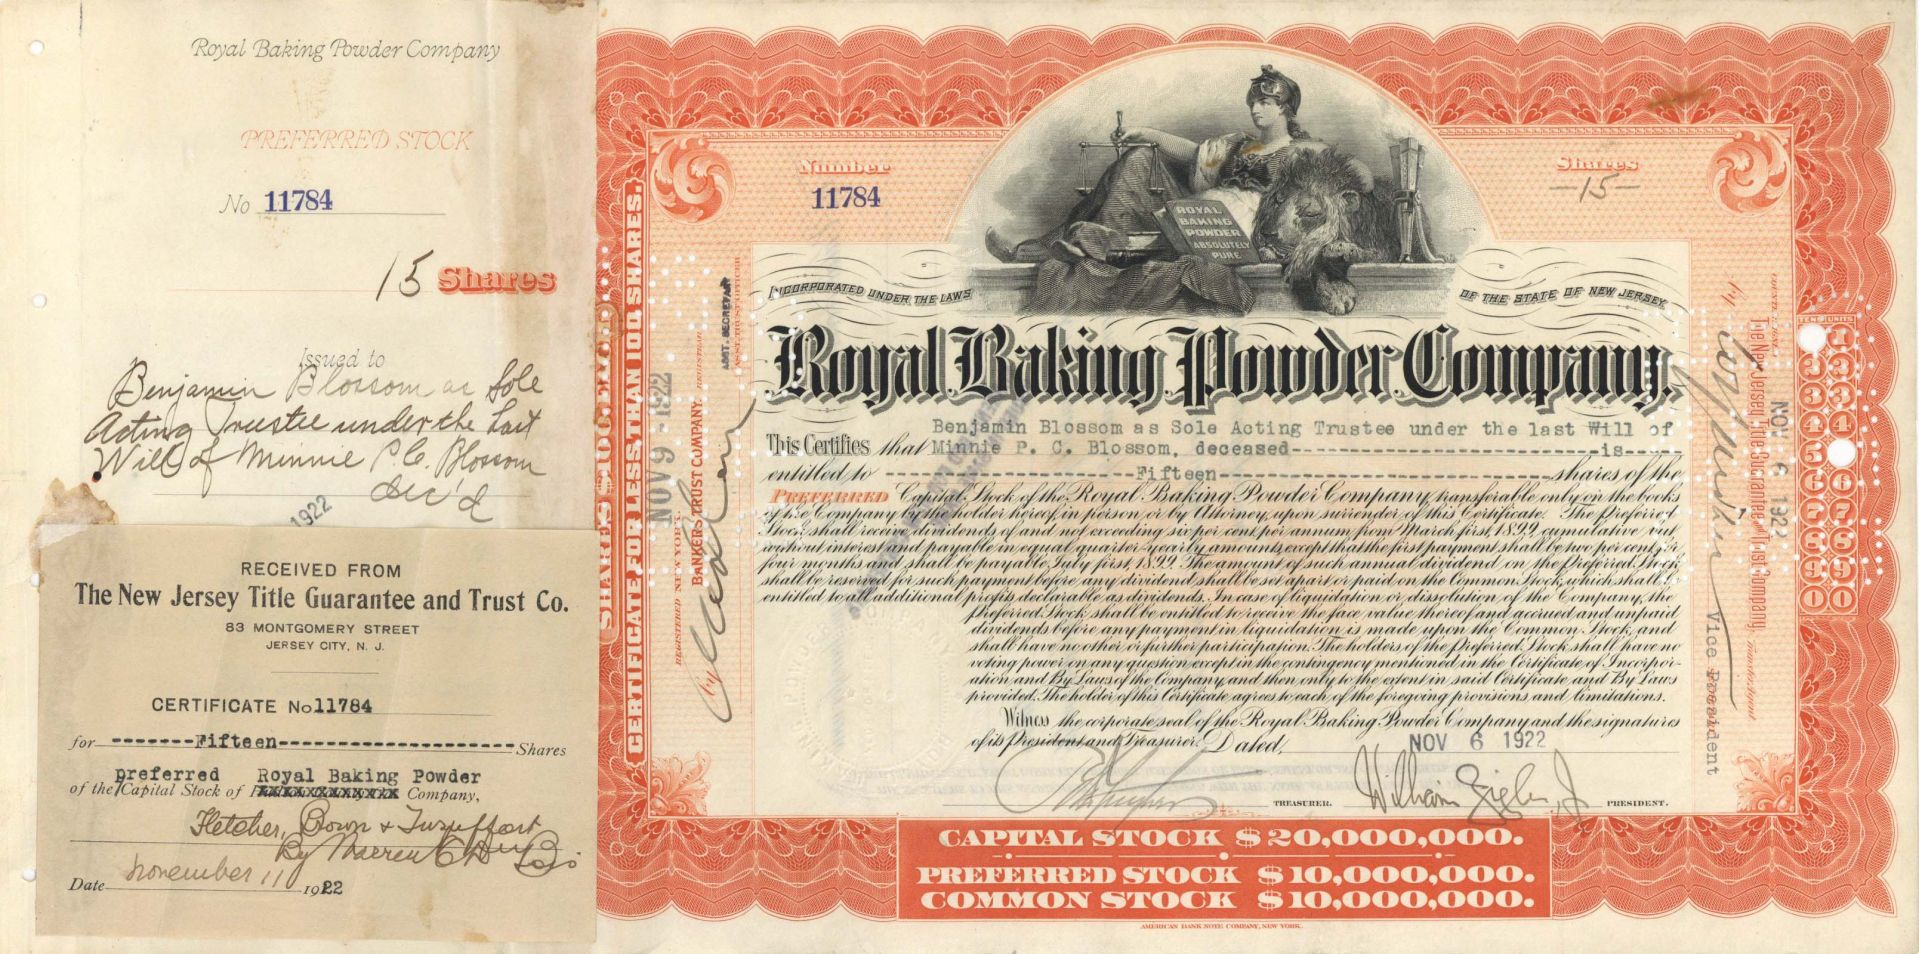 Royal Baking Powder Company
PREFERRED STOCK
No 11784
15 Shares
Issued to
Benjamin Blossom as Sole
Acting Trustee under the Last
Will of Minnie P. C. Blossom
dec'd
1922
RECEIVED FROM
The New Jersey Title Guarantee and Trust Co.
83 MONTGOMERY STREET
JERSEY CITY, N. J.
CERTIFICATE No 11784
for -------Fifteen-------------------- Shares
preferred Royal Baking Powder
of the Capital Stock of xxxxxxxxxxxxx Company,
Fletcher, Bown &
By Warren C.
Date November 11 1922
SHARES $100 EACH.
CERTIFICATE FOR LESS THAN 100 SHARES.
REGISTERED NEW YORK
NOV 9 - 1922
BANKERS TRUST COMPANY REGISTRAR
by
ASST. SECRETARY
ASST. TRUST OFFICER
Number
11784
Shares
-15-
ROYAL
BAKING
POWDER
ABSOLUTELY
PURE
INCORPORATED UNDER THE LAWS
OF THE STATE OF NEW JERSEY
Royal Baking Powder Company.
Benjamin Blossom as Sole Acting Trustee under the last Will of
This Certifies that Minnie P. C. Blossom, deceased---------------------------is----
entitled to ----------------------Fifteen----------------------------- shares of the
PREFERRED Capital Stock of the Royal Baking Powder Company transferable only on the books
of the Company by the holder hereof in person or by Attorney upon surrender of this Certificate. The Preferred
Stock shall receive dividends of and not exceeding six per cent per annum from March first, 1899, cumulative but
without interest and payable in equal quarter yearly amounts, except that the first payment shall be two per cent for
four months and shall be payable July first 1899. The amount of such annual dividend on the Preferred Stock
shall be reserved for such payment before any dividend shall be set apart or paid on the Common Stock, which shall be
entitled to all additional profits declarable as dividends. In case of liquidation or dissolution of the Company, the
Preferred Stock shall be entitled to receive the face value thereof and accrued and unpaid
dividends before any payment in liquidation is made upon the Common Stock, and
shall have no other or further participation. The holders of the Preferred Stock shall have no
voting power on any question except in the contingency mentioned in the Certificate of Incorpor-
ation and By Laws of the Company, and then only to the extent in said Certificate and By Laws
provided. The holder of this Certificate agrees to each of the foregoing provisions and limitations.
Witness the corporate seal of the Royal Baking Powder Company and the signatures
of its President and Treasurer. Dated, NOV 6 1922
TREASURER. William Ziegler Jr PRESIDENT.
CAPITAL STOCK $20,000,000.
PREFERRED STOCK $10,000,000.
COMMON STOCK $10,000,000.
AMERICAN BANK NOTE COMPANY, NEW YORK.
TENS UNITS
1 1
2 2
3 3
4 4
5 5
6 6
7 7
8 8
9 9
0 0
COUNTERSIGNED
NOV 6 1922
The New Jersey Title Guarantee and Trust Company, Transfer Agent
by
Vice President